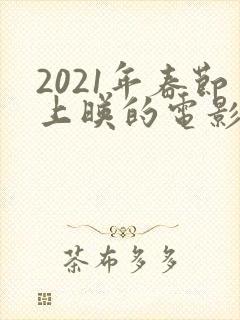 2021年春節
上暎的電影
茶布多多